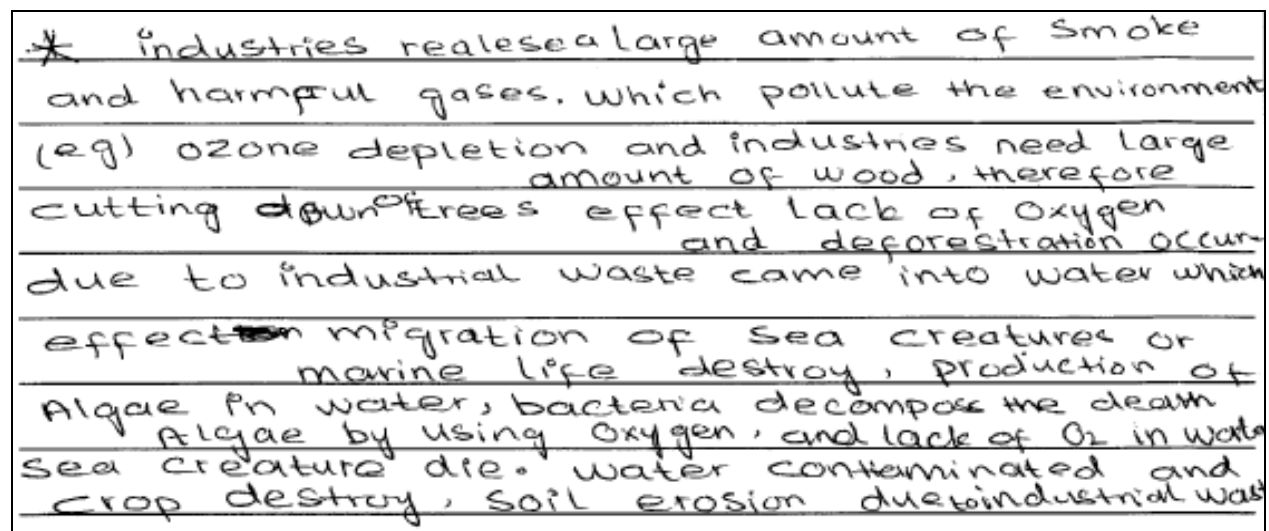 * industries realese a large amount of smoke
and harmful gases. Which pollute the environment
(eg) ozone depletion and industries need large
amount of wood, therefore
cutting down of trees effect lack of oxygen
and deforestration occur
due to industrial waste came into water which
effect migration of sea creatures or
marine life destroy, production of
Algae in water, bacteria decompose the death
Algae by using oxygen, and lack of O₂ in wate
sea creature die. water contaminated and
crop destroy, soil erosion due to industrial wast